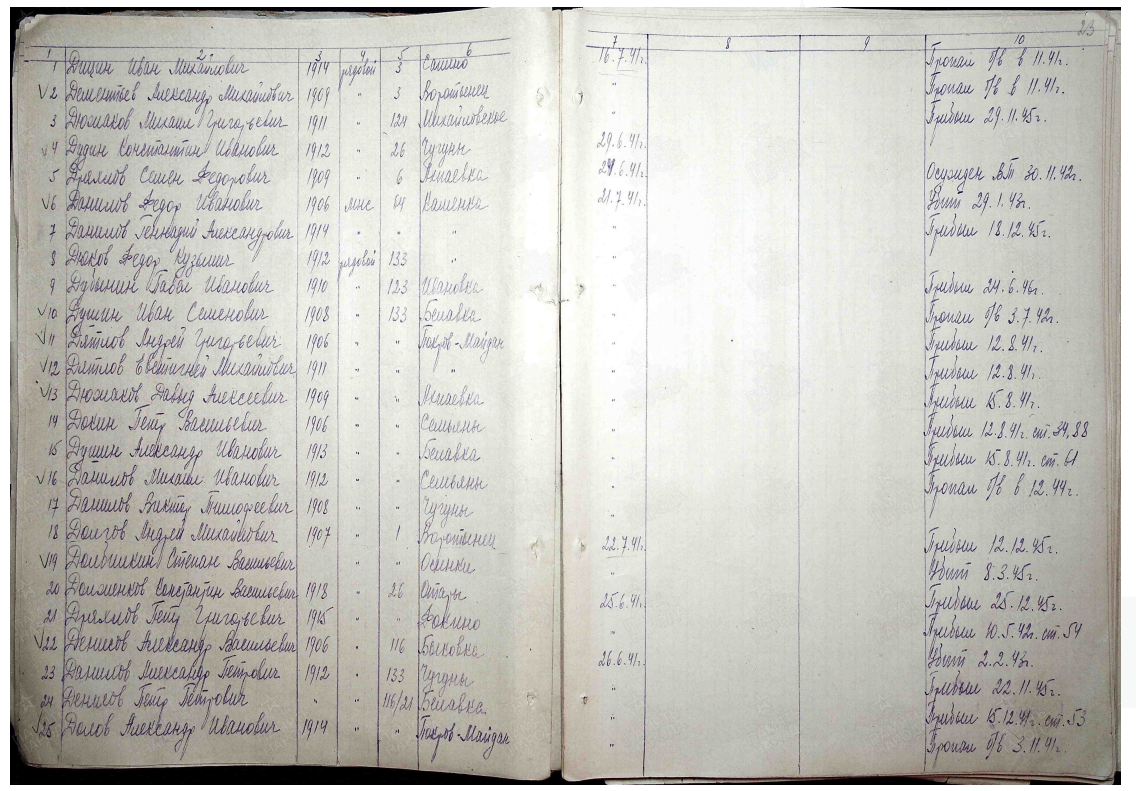 23
1 2 3 4 5 6 7 8 9 10
1 Дицин Иван Михайлович 1914 рядовой 3 Сомино 16.7.41г. Пропал б/в в 11.41г.
√2 Дементьев Александр Михайлович 1909 " 3 Воротынец " Пропал б/в в 11.41г.
3 Дюжаков Михаил Григорьевич 1911 " 124 Михайловское " Прибыл 29.11.45г.
√4 Дудин Константин Иванович 1912 " 26 Чугуны 29.6.41г.
5 Дряхлов Семен Федорович 1909 " 6 Алпаевка 24.6.41г. Осужден ВТ 30.11.42г.
√6 Данилов Федор Иванович 1906 мнс 64 Каменка 21.7.41г. Убит 29.1.43г.
7 Данилов Геннадий Александрович 1914 " " " " Прибыл 18.12.45г.
8 Дюков Федор Кузьмич 1912 рядовой 133 " "
9 Дубынин Павел Иванович 1910 " 123 Ивановка " Прибыл 24.6.46г.
√10 Душин Иван Семенович 1908 " 133 Белавка " Пропал б/в 3.7.42г.
√11 Дятлов Андрей Григорьевич 1906 " " Покров-Майдан " Прибыл 12.8.41г.
√12 Дятлов Евстигней Михайлович 1911 " " " " Прибыл 12.8.41г.
√13 Дюжаков Давыд Алексеевич 1909 " " Алпаевка " Прибыл 15.8.41г.
14 Докин Петр Васильевич 1906 " " Семьяны " Прибыл 12.8.41г. ст. 34,88
15 Душин Александр Иванович 1913 " " Белавка " Прибыл 15.8.41г. ст. 61
√16 Данилов Михаил Иванович 1912 " " Семьяны " Пропал б/в в 12.44г.
17 Данилов Виктор Тимофеевич 1908 " " Чугуны "
18 Долгов Андрей Михайлович 1907 " 1 Воротынец 22.7.41г. Прибыл 12.12.45г.
√19 Долбилкин Степан Васильевич " " " Осинки " Убит 8.3.45г.
20 Долженков Константин Васильевич 1918 " 26 Отары 25.6.41г. Прибыл 25.12.45г.
21 Дряхлов Петр Григорьевич 1915 " " Фокино " Прибыл 10.5.42г. ст. 54
√22 Денисов Александр Васильевич 1906 " 116 Белковка 26.6.41г. Убит 2.2.43г.
23 Данилов Александр Петрович 1912 " 133 Чугуны " Прибыл 22.11.45г.
24 Денисов Петр Петрович " " 116/21 Белавка " Прибыл 15.12.41г. ст. 53
√25 Долов Александр Иванович 1914 " " Покров-Майдан " Пропал б/в 3.11.41г.